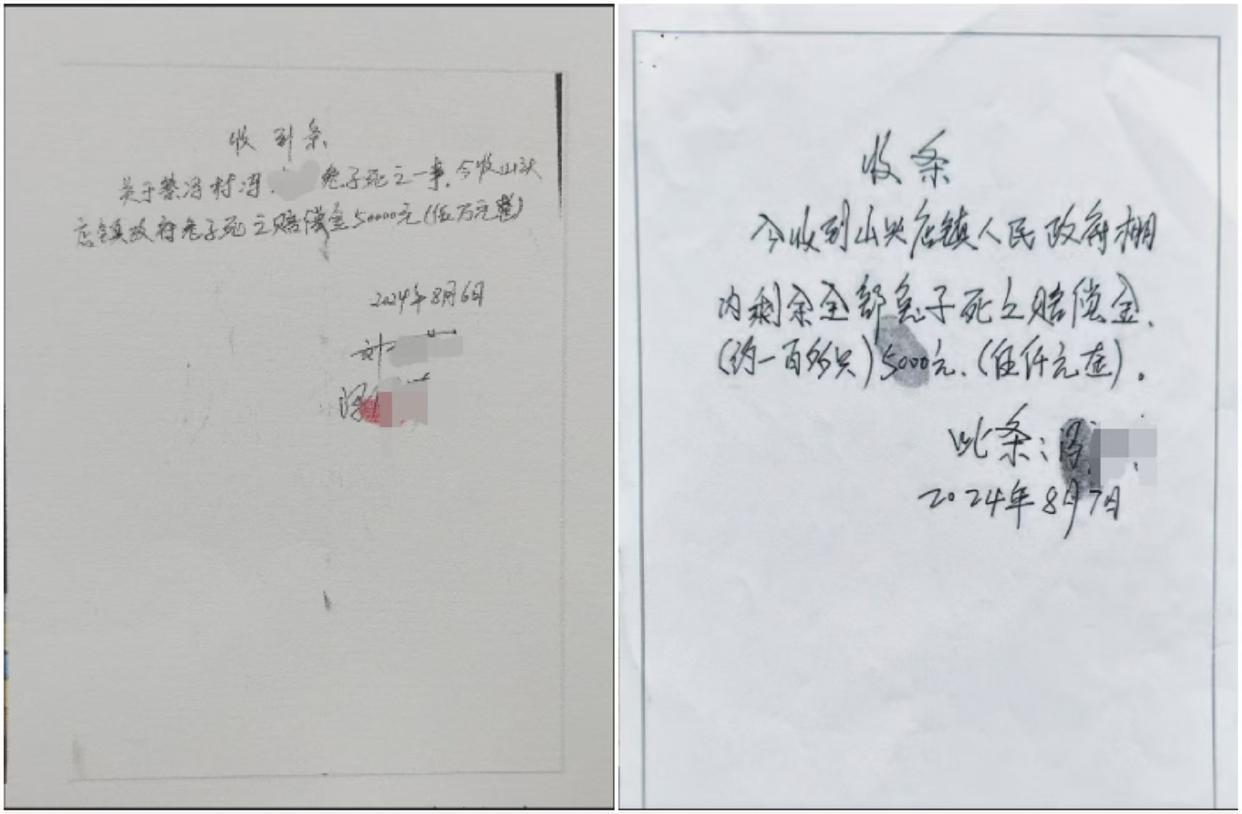 收到条
关于蔡冯村冯 兔子死之一事,今收山头
店镇政府兔子死之赔偿金50000元(伍万元整)
2024年8月6日
刘
冯
收条
今收到山头店镇人民政府棚
内剩余全部兔子死之赔偿金、
(约一百多只)5000元、(伍仟元整)。
此条:冯
2024年8月7日